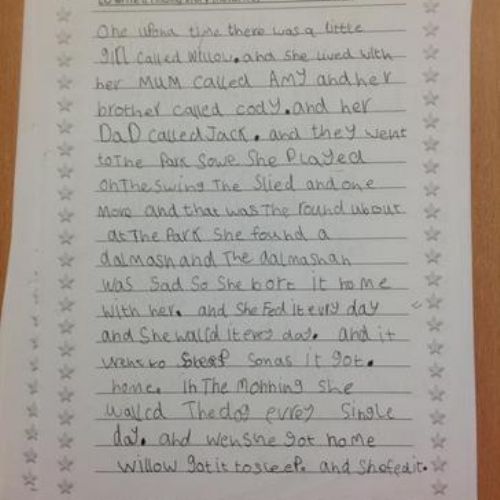 One uPona time there was a little
girl called Willow. and she lived with
her MUM called AMY and her
brother called cody. and her
DaD called Jack. and they went
to The Park Sowe She Played
on The Swing The Slied and one
More and that was The round about
at The Park She found a
dalmashand The dalmashan
was Sad So She bort it home
with her. and She Fed it evry day
and She walcd it evey day. and it
went to Sleep Sonas it got.
home. in The Mohning she
walcd The dog evrey Single
day. and wenshe got home
willow got it to sleep. and She fed it.